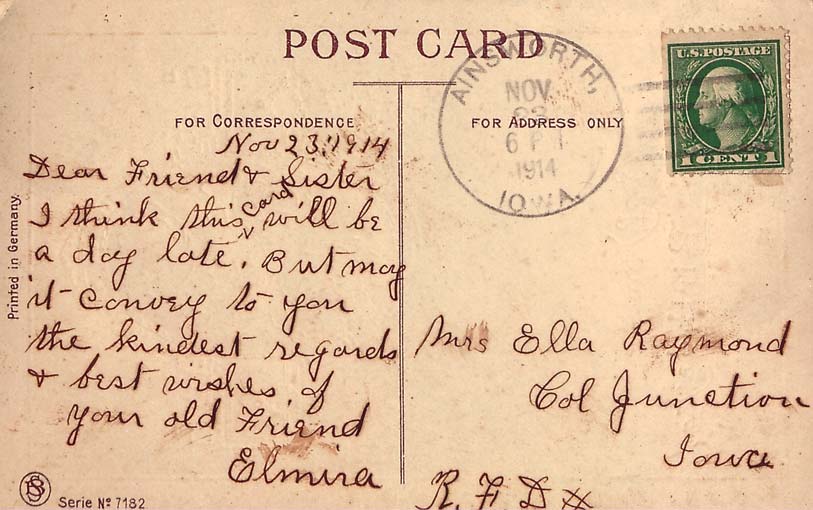 POST CARD
FOR CORRESPONDENCE
FOR ADDRESS ONLY
AINSWORTH,
NOV
1914
IOWA.
U.S. POSTAGE
1 CENT 1
Nov 23, 1914
Dear Friend & Sister
I think this card will be
a day late. But may
it convey to you
the kindest regards
& best wishes of
your old Friend
Elmira
Mrs Ella Raymond
Col Junction
Iowa
R. F. D #
Printed in Germany.
Serie No 7182